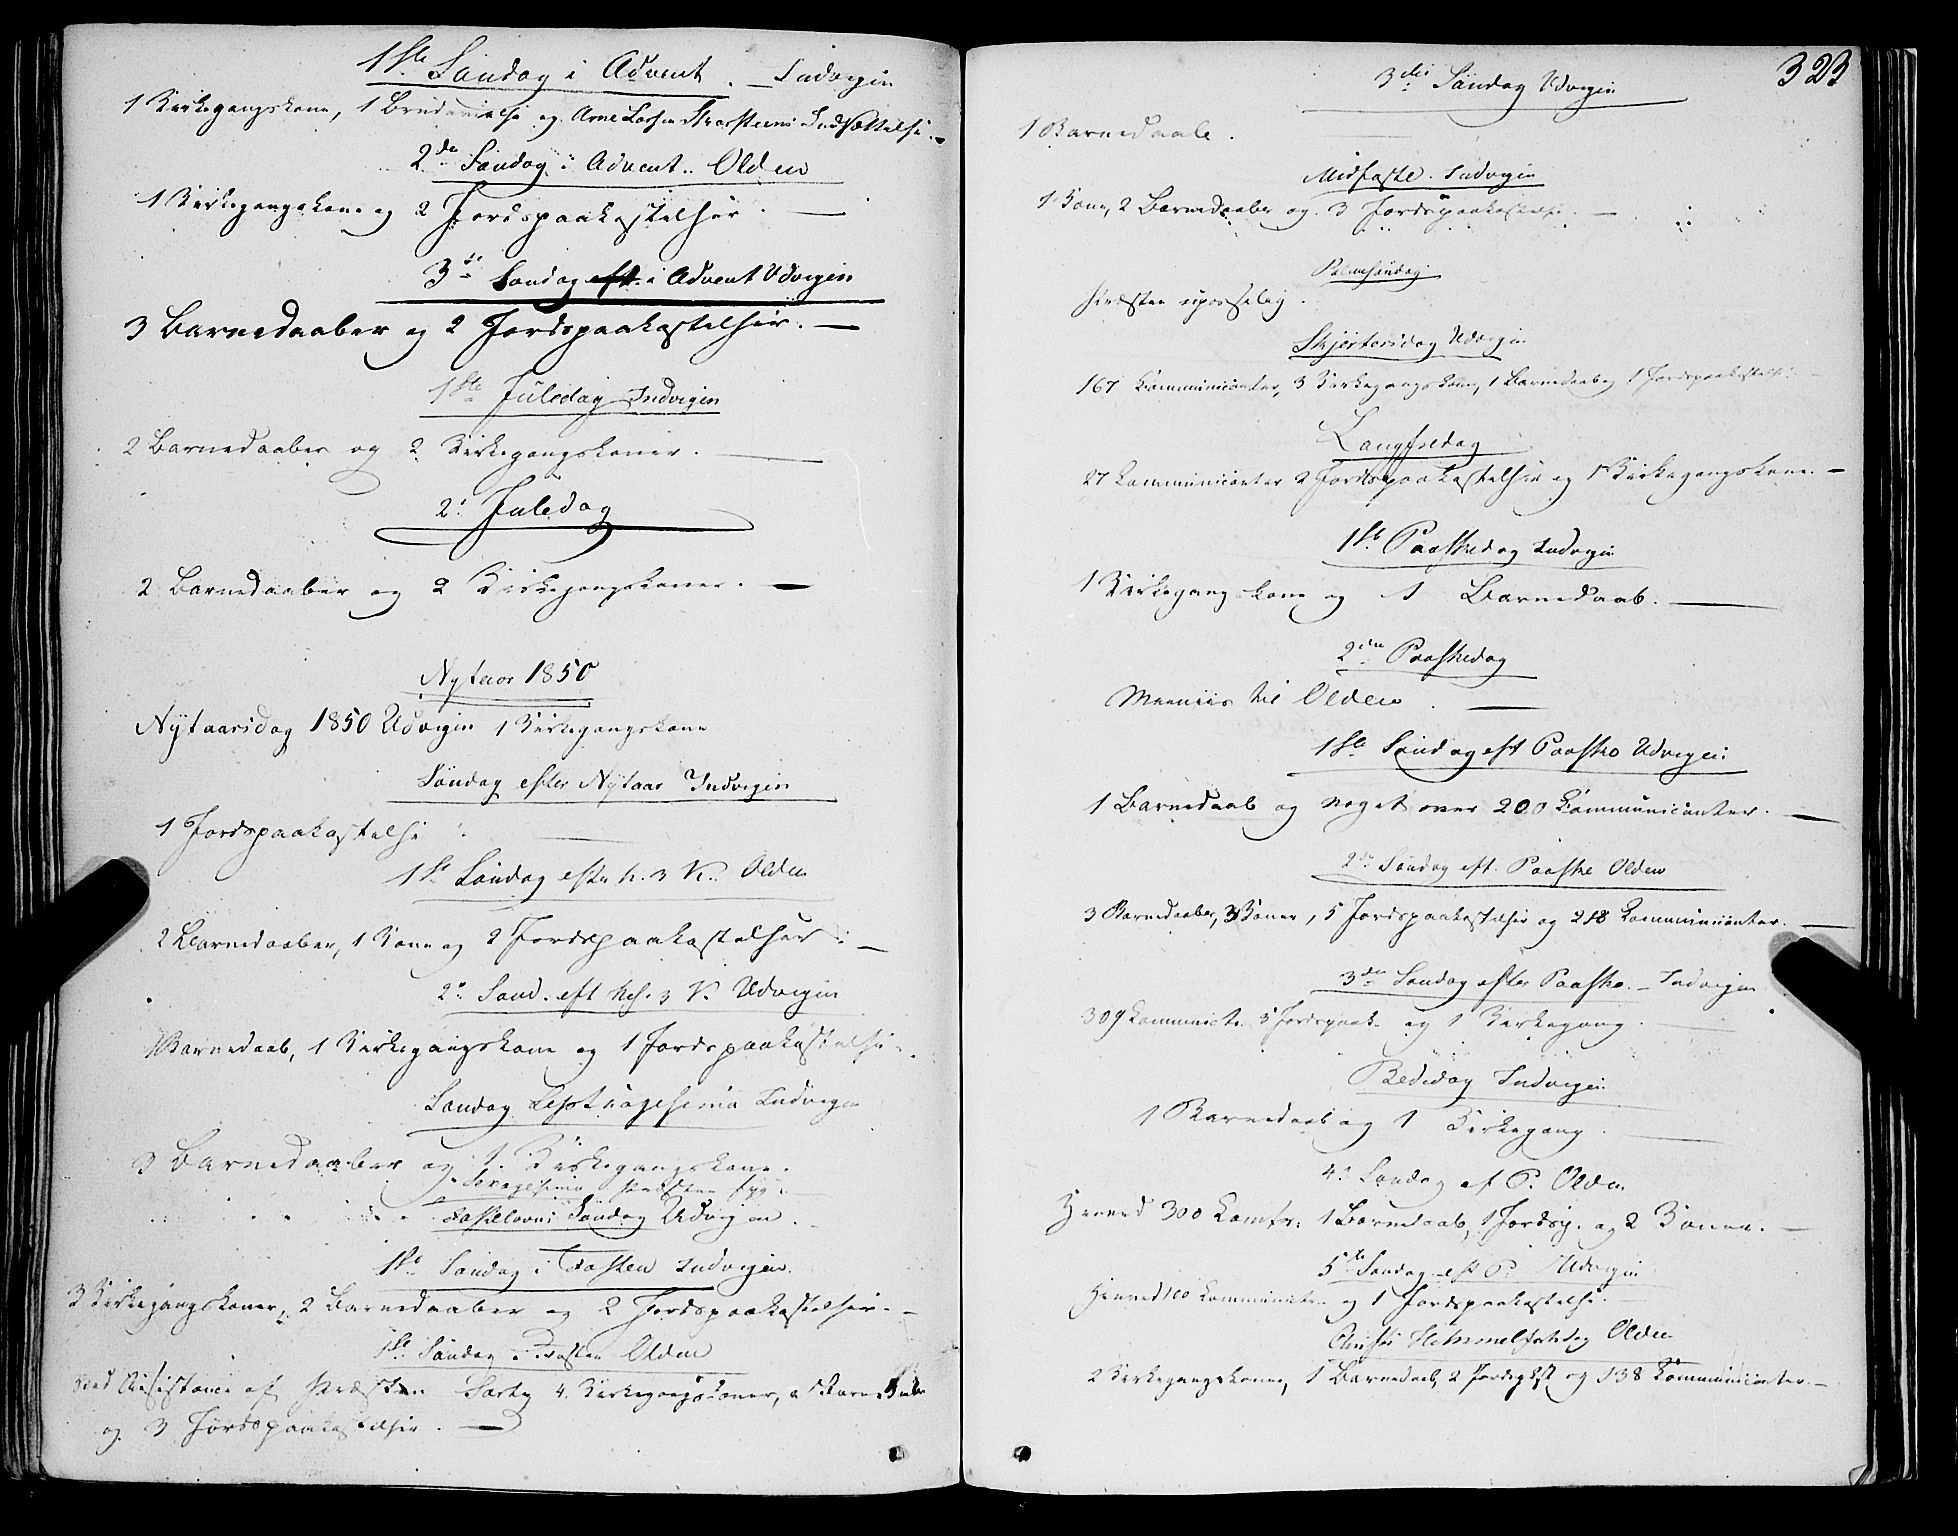 1ste Søndag i Advent. – Indvigen
1 Kirkegangskone, 1 Brudevielse og Arne Larsen Indsættelse.
2de Søndag i Advent. Olden
1 Kirkegangskone og 2 Jordspaakastelser. —
3de Søndag eft. i Advent Udvigen
3 Barnedaaber og 2 Jordspaakastelser. —
1ste Juledag Indvigen
2 Barnedaaber og 2 Kirkegangskoner. —
2. Juledag
2 Barnedaaber og 2 Kirkegangskoner. —
Nytaar 1850
Nytaarsdag 1850 Udvigen 1 Kirkegangskone
Søndag efter Nytaar Indvigen
1 Jordspaakastelse. —
1ste Søndag efter h. 3 K. Olden
2 Barnedaaber, 1 Kone og 2 Jordspaakastelser. —
2. Sønd. eft hel. 3 K. Udvigen
1 Barnedaab, 1 Kirkegangskone og 1 Jordspaakastelse.
Søndag Septuagesima Indvigen
3 Barnedaaber og 1. Kirkegangskone.
Sexagesima Præsten syg.
Fastelavns Søndag Udvigen.
1ste Søndag i Fasten Indvigen.
3 Kirkegangskoner, 2 Barnedaaber og 2 Jordspaakastelser. —
Søndag i Fasten Olden
Ved Assistance af Præsten 4. Kirkegangskoner,
og 3 Jordspaakastelser. —
323
3die Søndag Udvigen
1 Barnedaab.
Midfaste. Indvigen
1 Kone, 2 Barnedaaber og 3 Jordspaakastelse. —
Palmesøndag.
Præsten upasselig.
Skjertorsdag Udvigen
167 Communicanter, 3 Kirkegangskone, 1 Barnedaab og 1 Jordspaakastelse.
Langfredag
27 Communicanter 2 Jordspaakastelser og 1 Kirkegangskone. —
1ste Paaskedag Indvigen
1 Kirkegangskone og 1 Barnedaab. —
2den Paaskedag
til Olden. —
1ste Søndag eft Paaske Udvigen.
1 Barnedaab og noget over 200 Communicanter. —
2de Søndag eft. Paaske Olden
3 Barnedaaber, 3 Koner, 5 Jordspaakastelser og 218 Communicanter. —
3die Søndag efter Paaske. – Indvigen
309 Communict. 3 Jordspaak. og 1 Kirkegang. —
Bededag Indvigen
1 Barnedaab og 1 Kirkegang. —
4. Søndag ef P. Olden
Henved 300 Comfr: 1 Barnedaab, 1 Jordsp. og 2 Koner. —
5te Søndag eft P. Udvigen
Henved 100 Communicter og 1 Jordspaakastelse.
Christi Himmelfartsdag Olden
2 Kirkegangskoner, 1 Barnedaab, 2 og 138 Communicanter. —